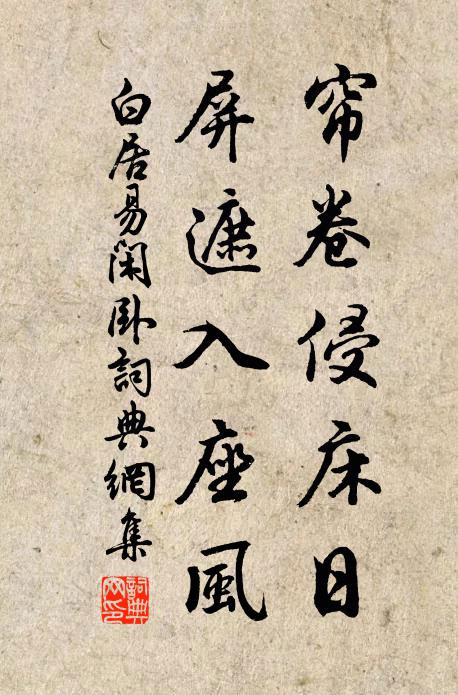 帘卷侵床日
屏遮入座風
白居易閑臥詞典網集
詞典網印